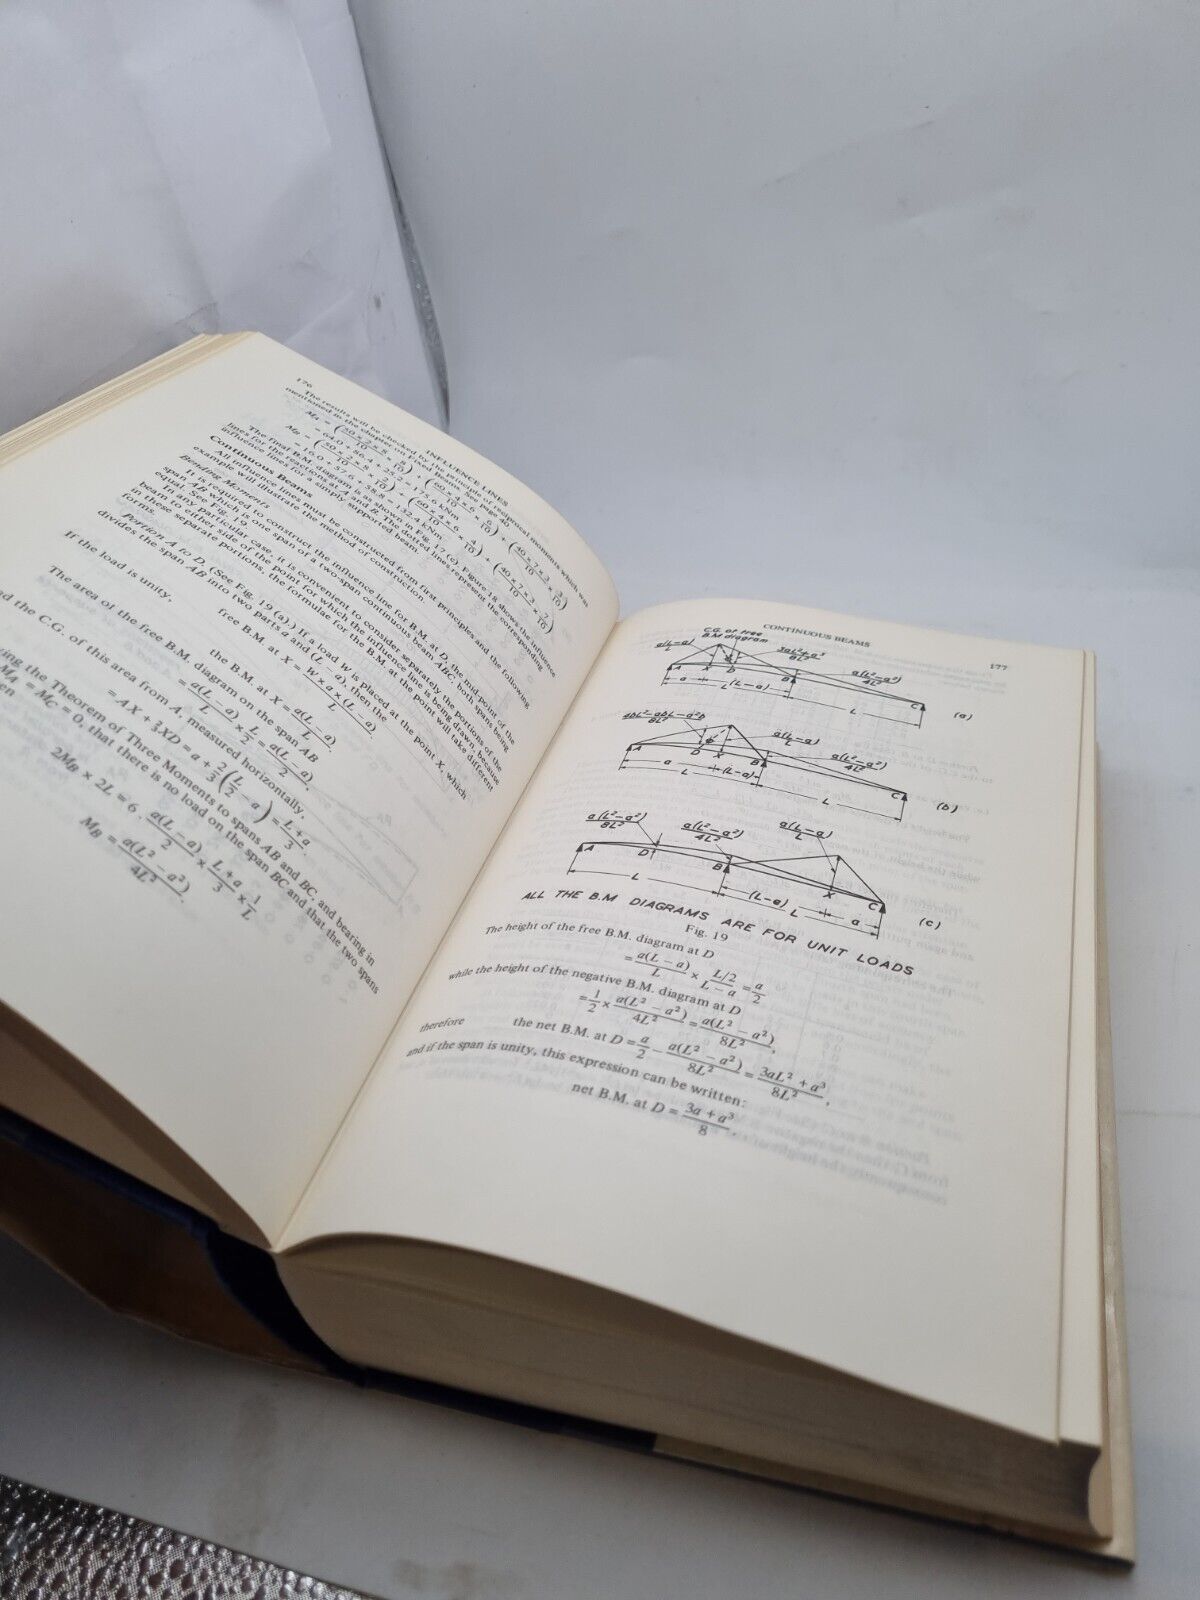 176
INFLUENCE LINES
The results will be checked by the principle of reciprocal moments which was
mentioned in the chapter on Fixed Beams. See page 40
M_A = (50 × 2 × 8/10 × 8/10) + (60 × 4 × 6/10 × 6/10) + (40 × 7 × 3/10 × 3/10)
= 64.0 + 86.4 + 25.2 = 175.6 kNm
M_B = (50 × 2 × 8/10 × 2/10) + (60 × 4 × 6/10 × 4/10) + (40 × 7 × 3/10 × 7/10)
= 16.0 + 57.6 + 58.8 = 132.4 kNm
The final B.M. diagram is as shown in Fig. 17 (c). Figure 18 shows the influence
lines for the reactions at A and B. The dotted lines represent the corresponding
influence lines for a simply supported beam.
Continuous Beams
All influence lines must be constructed from first principles and the following
example will illustrate the method of construction.
Bending Moments
It is required to construct the influence line for B.M. at D, the mid-point of the
span AB which is one span of a two-span continuous beam ABC, both spans being
equal. See Fig. 19.
In any particular case, it is convenient to consider separately the portions of the
beam to either side of the point for which the influence line is being drawn, because
in these separate portions, the formulae for the B.M. at the point will take different
forms.
Portion A to D. (See Fig. 19 (a).) If a load W is placed at the point X, which
divides the span AB into two parts a and (L − a), then the
free B.M. at X = W × a × (L − a)/L
If the load is unity,
the B.M. at X = a(L − a)/L
The area of the free B.M. diagram on the span AB
= a(L − a)/L × L/2 = a(L − a)/2,
the C.G. of this area from A, measured horizontally,
= AX + ⅔XD = a + 2/3(L/2 − a) = (L + a)/3.
the Theorem of Three Moments to spans AB and BC, and bearing in
M_A = M_C = 0, that there is no load on the span BC and that the two spans
2M_B × 2L = 6 . a(L − a)/2 × (L + a)/3 × 1/L
M_B = a(L² − a²)/4L².
CONTINUOUS BEAMS
177
C.G. of free
B.M diagram
a(L−a)/L
3aL²+a³/8L²
a(L²−a²)/4L²
A
X
D
B
C
a
(L−a)
L
L
(a)
a(L−a)/L
a(L²−a²)/4L²
A
D
X
B
C
a
(L−a)
L
L
(b)
a(L²−a²)/8L²
a(L²−a²)/4L²
a(L−a)/L
A
D
B
X
C
L
(L−a)
L
a
(c)
ALL THE B.M DIAGRAMS ARE FOR UNIT LOADS
Fig. 19
The height of the free B.M. diagram at D
= a(L − a)/L × (L/2)/(L − a) = a/2
while the height of the negative B.M. diagram at D
= 1/2 × a(L² − a²)/4L² = a(L² − a²)/8L²,
therefore the net B.M. at D = a/2 − a(L² − a²)/8L² = (3aL² + a³)/8L²,
and if the span is unity, this expression can be written:
net B.M. at D = (3a + a³)/8.